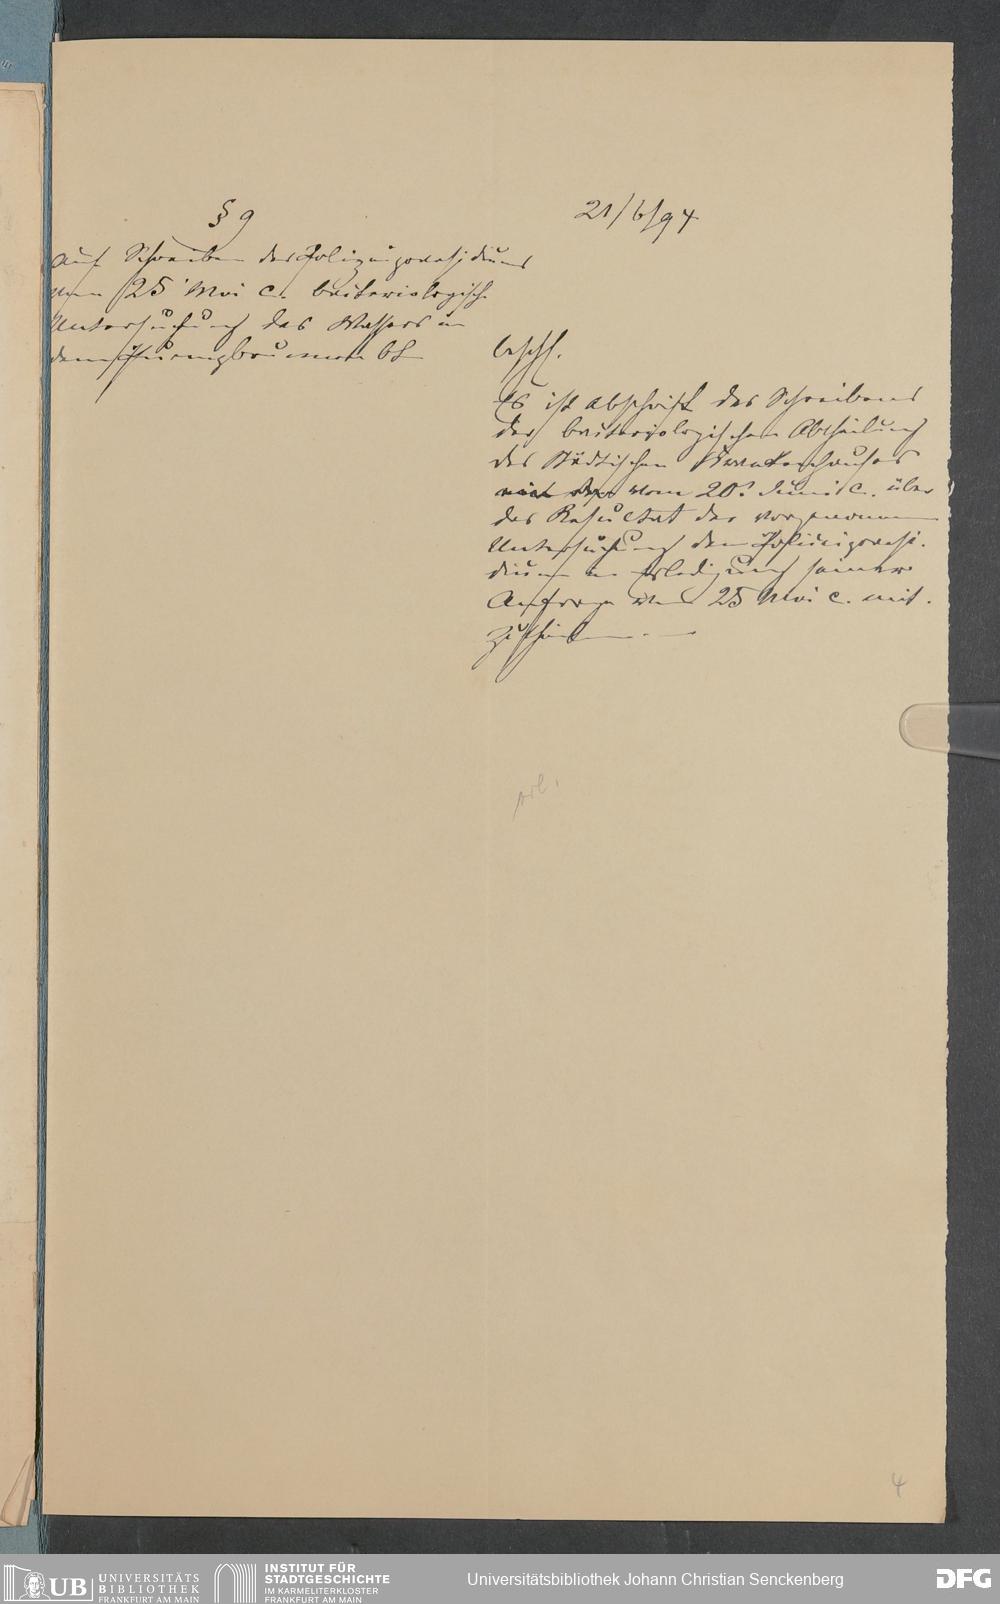 § 9
21/6/94
Auf Schreiben des Polizeipraesidiums
vom 25 Mai c. bacteriologische
Untersuchung des Wassers in
dem bt
beschl.
Es ist Abschrift des Schreibens
der bacteriologischen Abtheilung
des Städtischen Krankenhauses
vom 20. Juni c. über
das Resultat der vorgenommenen
Untersuchung dem Polizeipraesi-
dium in Erledigung seiner
Anfrage vom 25 Mai c. mit-
zutheilen.
erl.
4
UB UNIVERSITÄTS
BIBLIOTHEK
FRANKFURT AM MAIN
INSTITUT FÜR
STADTGESCHICHTE
IM KARMELITERKLOSTER
FRANKFURT AM MAIN
Universitätsbibliothek Johann Christian Senckenberg
DFG